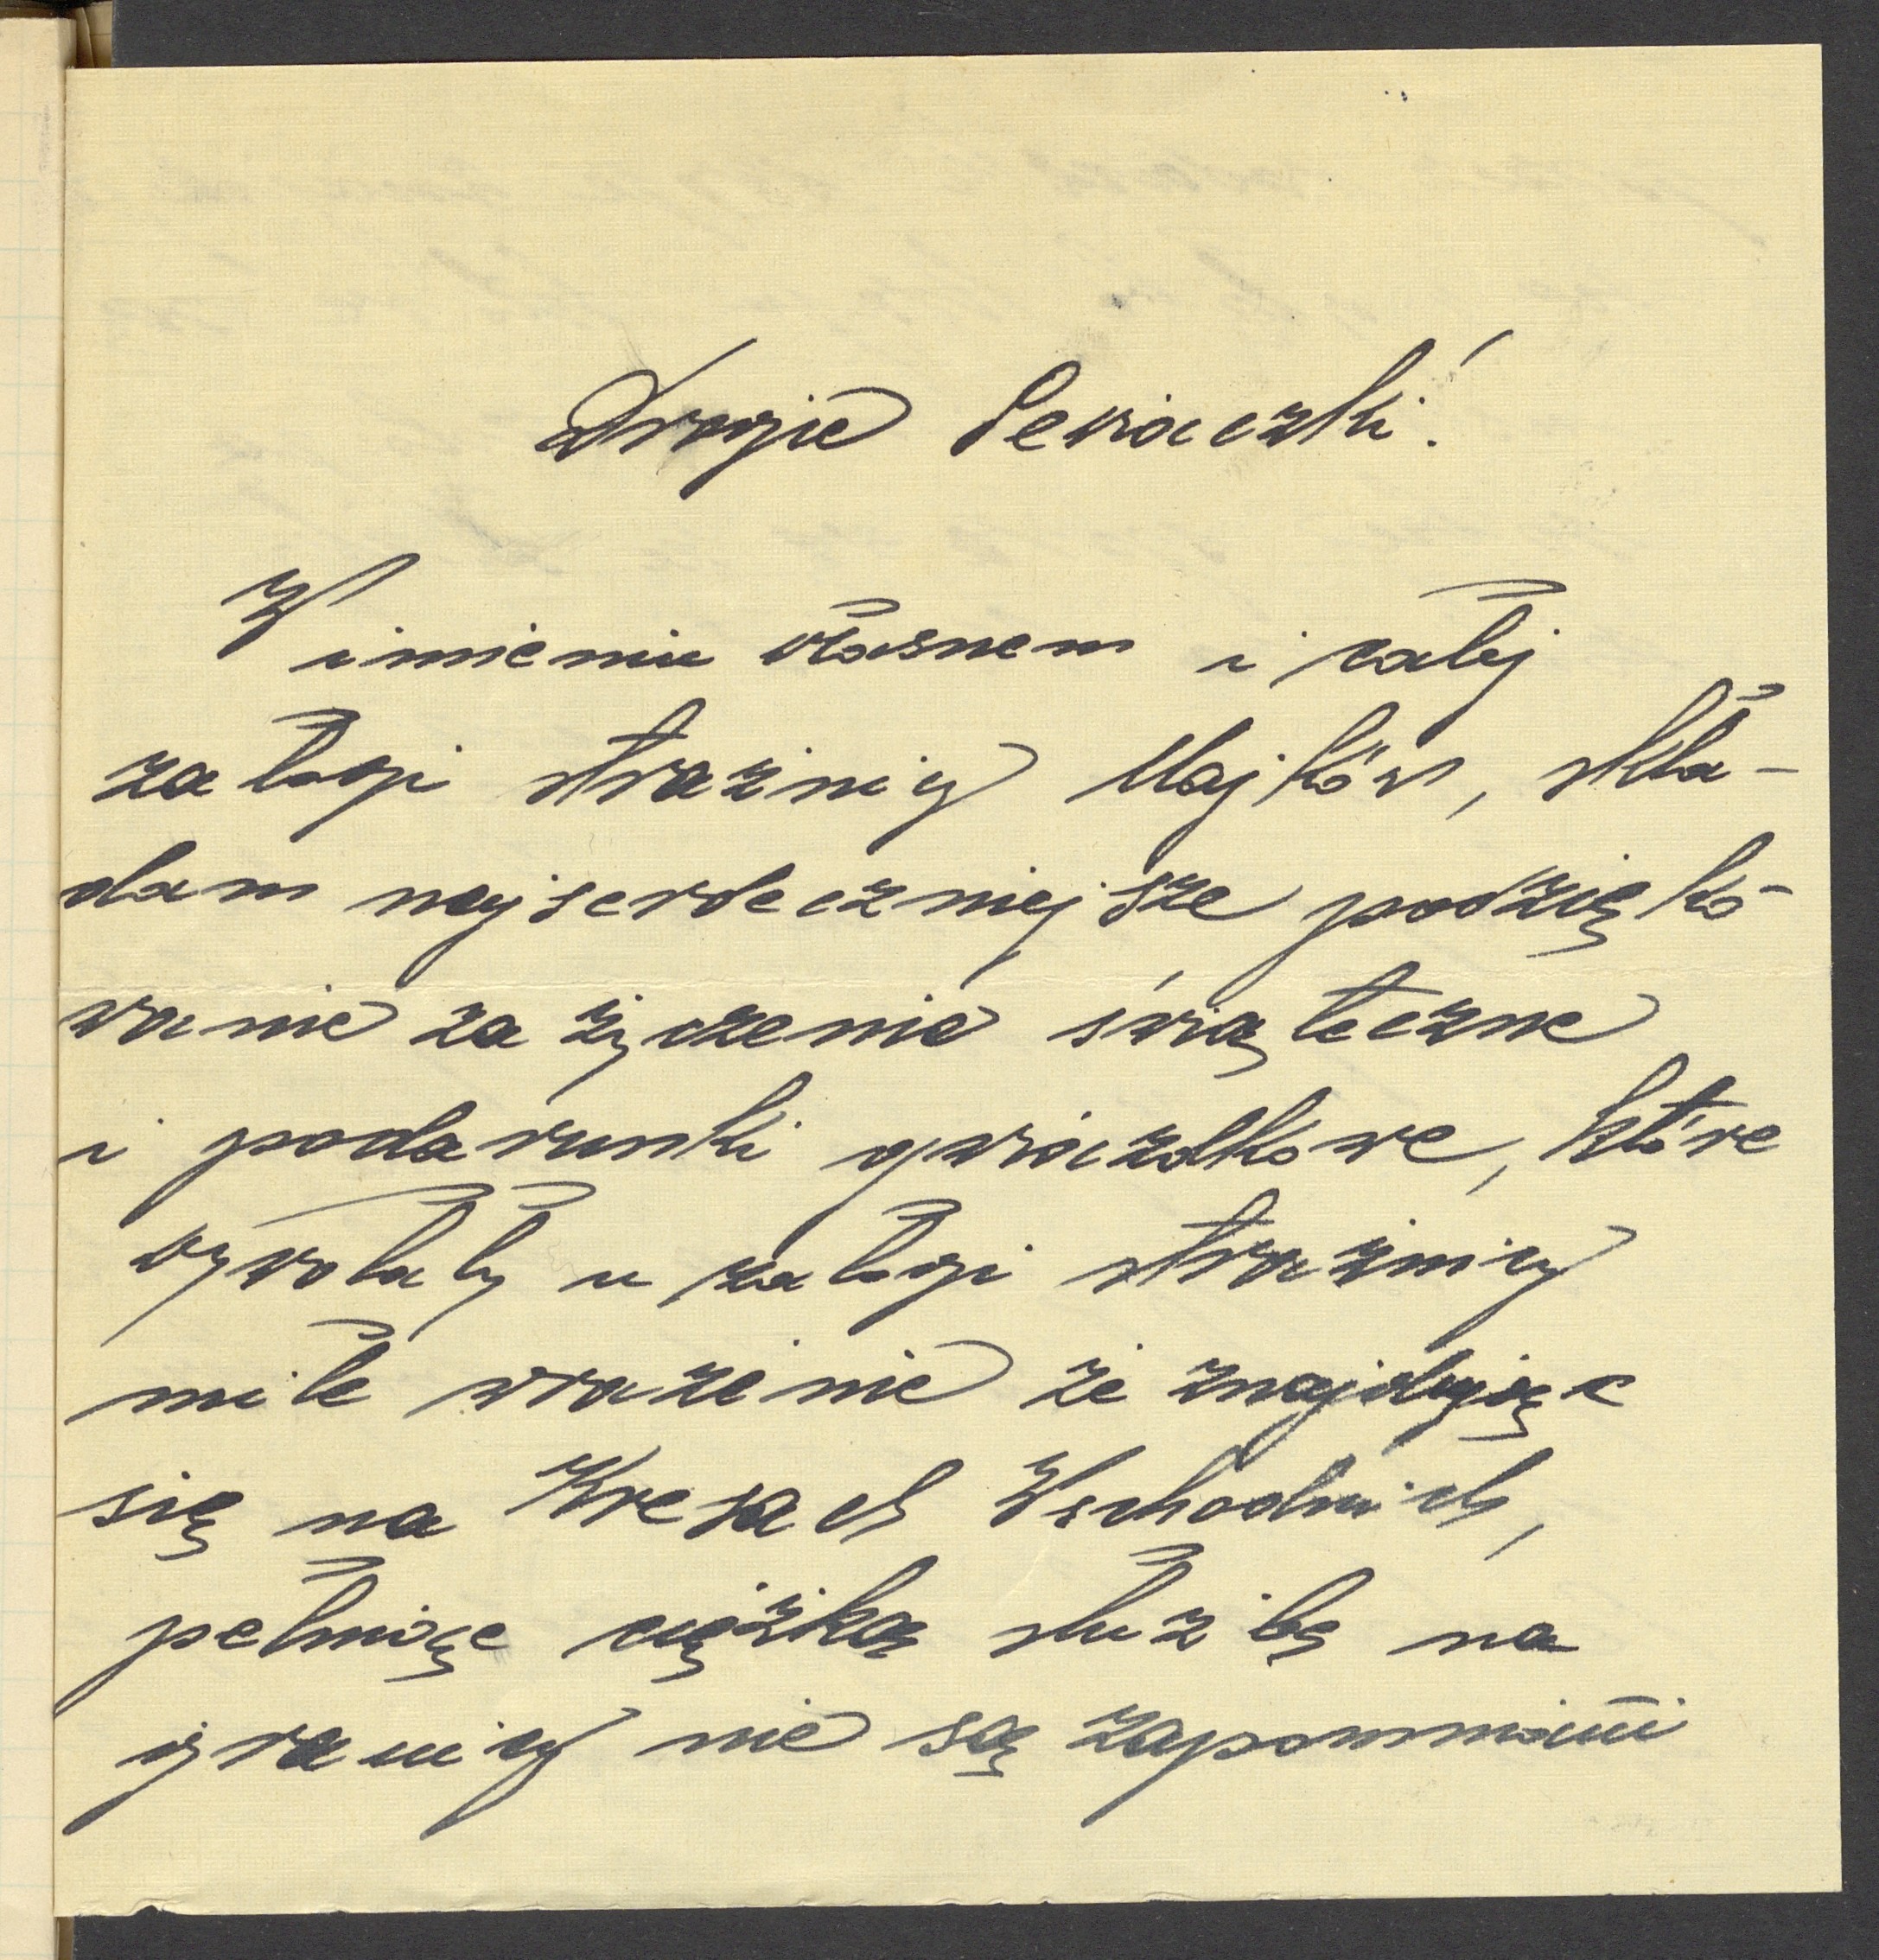 Drogie Seniaczki!
W imieniu własnem i całej
załogi strażnicy Majków, skła-
dam najserdeczniejsze podzięko-
wanie za życzenie świąteczne
i podarunki gwiazdkowe, które
wywołały u załogi strażnicy
miłe wrażenie że znajdujące
się na Kresach Wschodnich,
pełniące ciężką służbę na
granicy nie są zapomniani